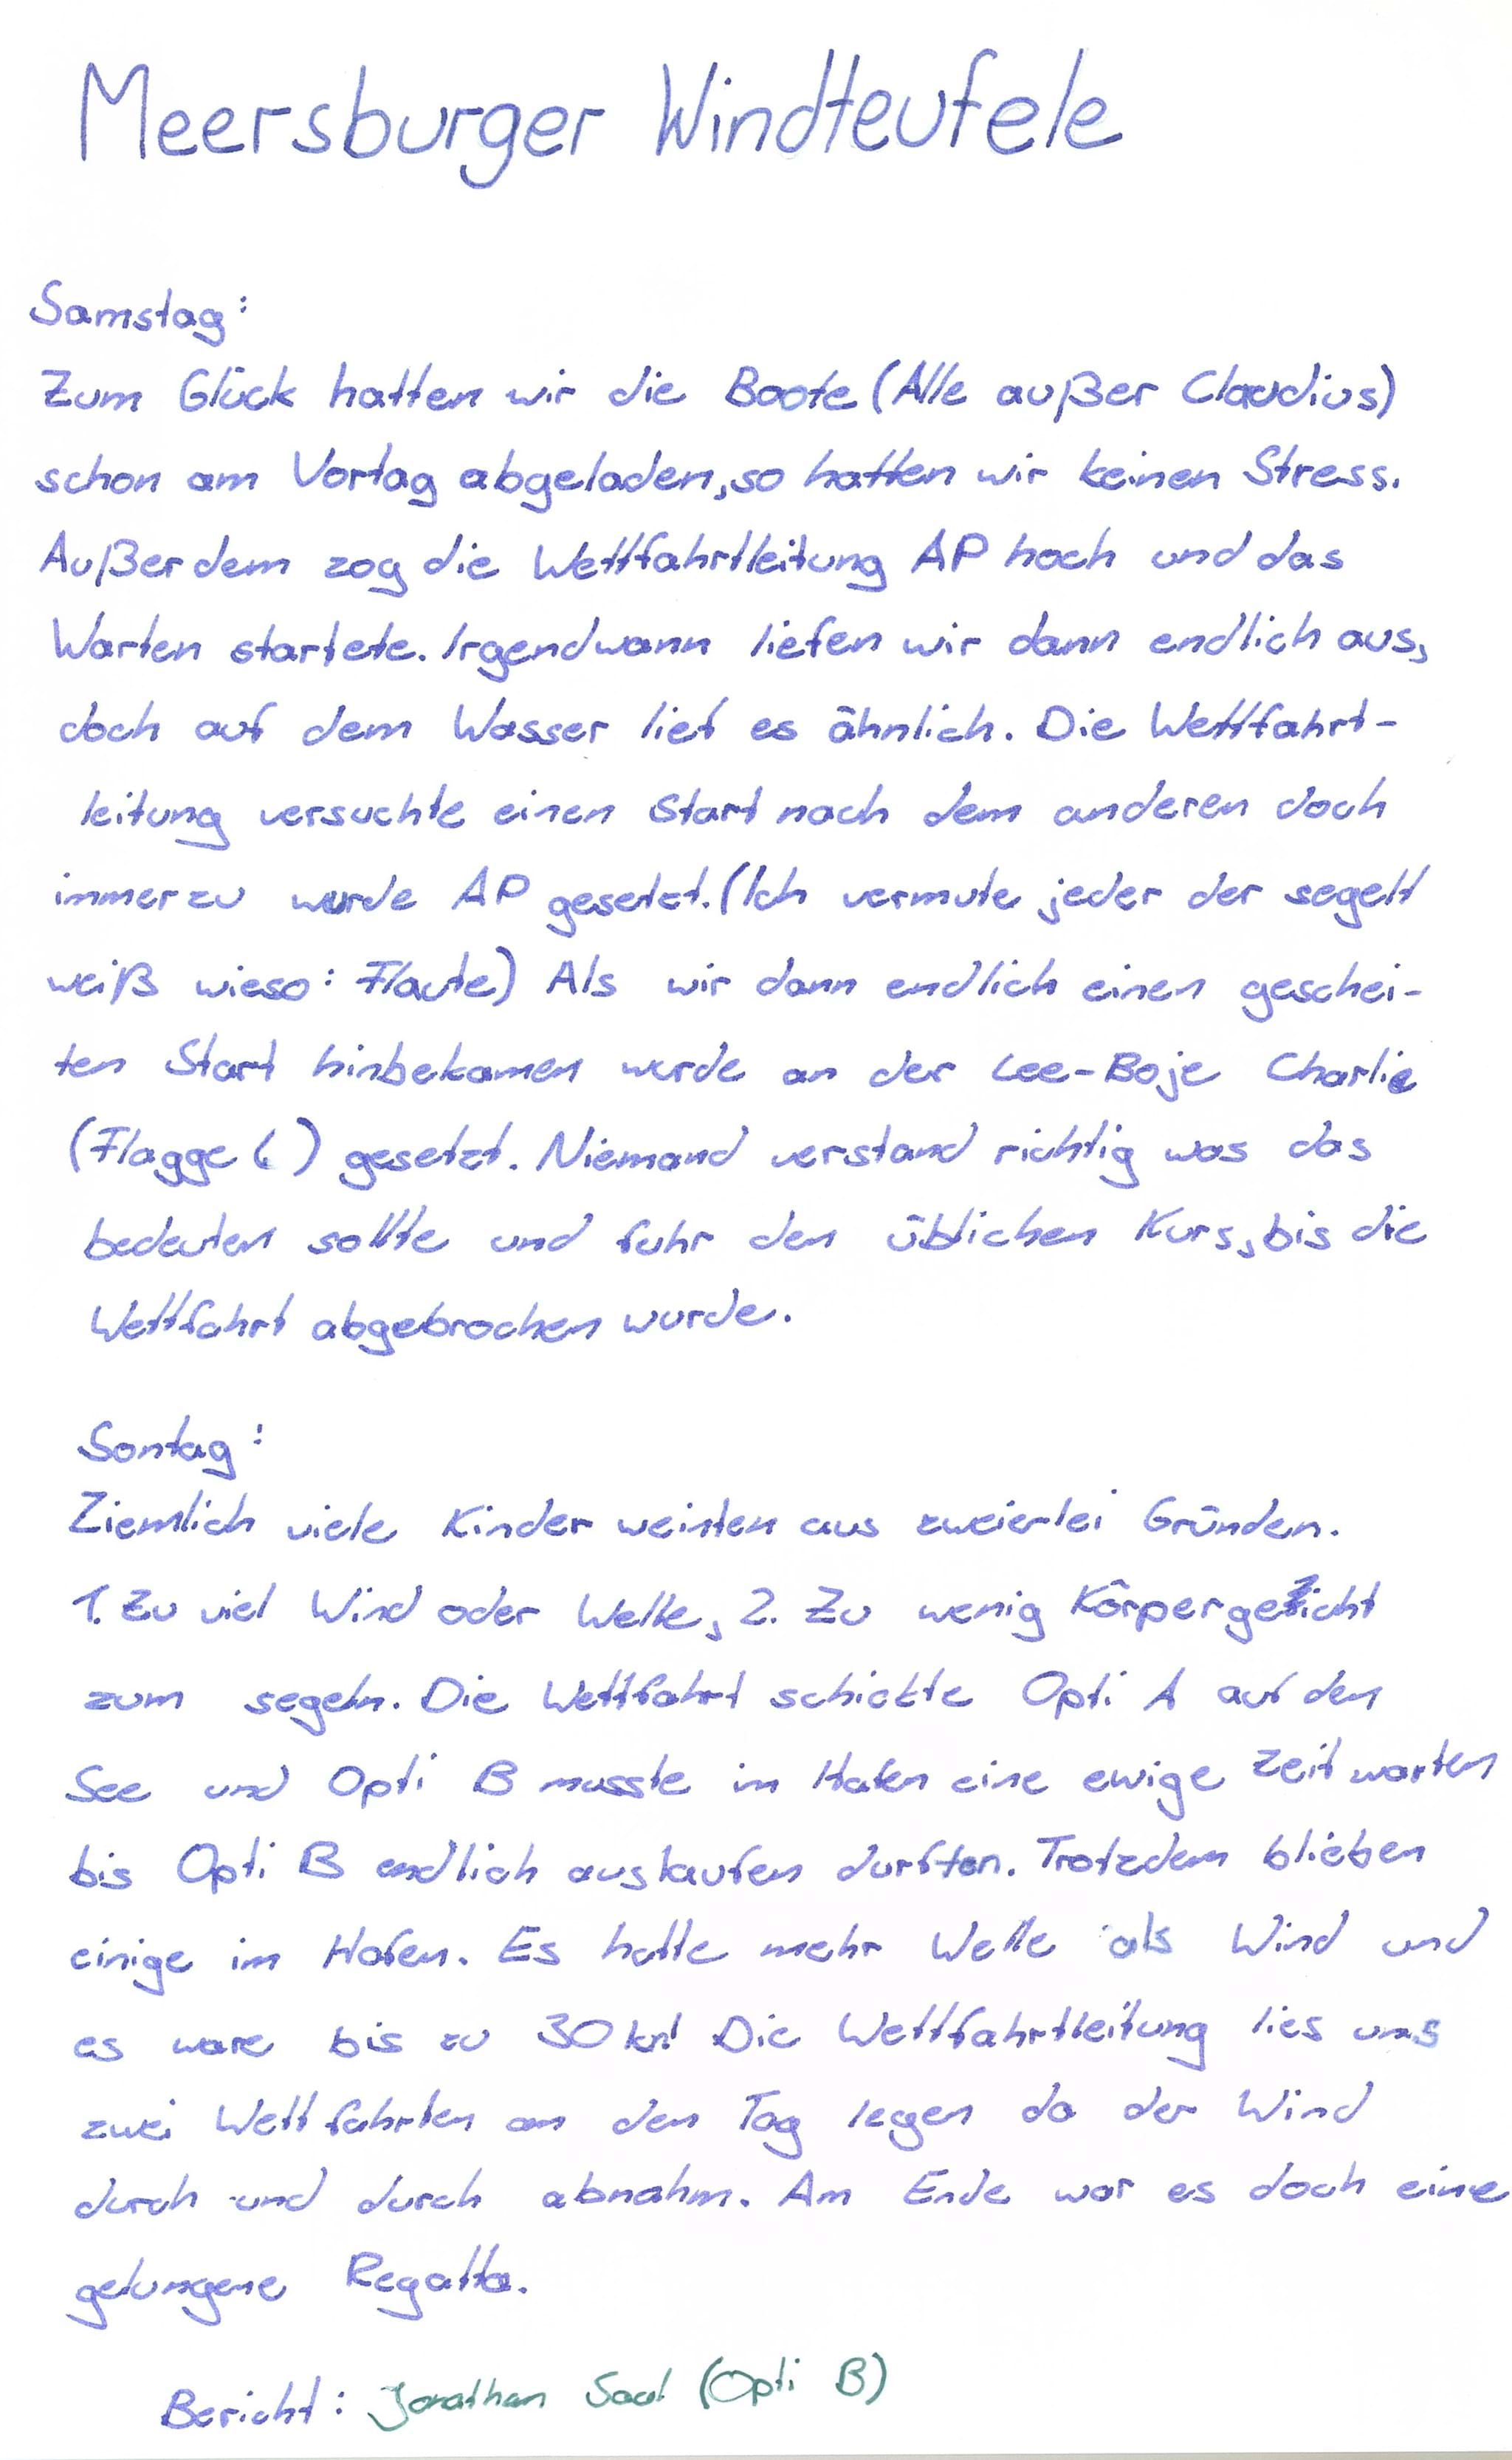 Meersburger Windteufele
Samstag:
Zum Glück hatten wir die Boote (Alle außer Claudius)
schon am Vortag abgeladen, so hatten wir keinen Stress.
Außerdem zog die Wettfahrtleitung AP hoch und das
Warten startete. Irgendwann liefen wir dann endlich aus,
doch auf dem Wasser lief es ähnlich. Die Wettfahrt-
leitung versuchte einen Start nach dem anderen doch
immerzu wurde AP gesetzt. (Ich vermute jeder der segelt
weiß wieso: Flaute) Als wir dann endlich einen geschei-
ten Start hinbekamen wurde an der Lee-Boje Charlie
(Flagge C) gesetzt. Niemand verstand richtig was das
bedeuten sollte und fuhr den üblichen Kurs, bis die
Wettfahrt abgebrochen wurde.
Sontag:
Ziemlich viele Kinder weinten aus zweierlei Gründen.
1. Zu viel Wind oder Welle, 2. Zu wenig
zum segeln. Die Wettfahrt schickte Opti A auf den
See und Opti B musste im Hafen eine ewige Zeit warten
bis Opti B endlich auslaufen durften. Trotzdem blieben
einige im Hafen. Es hatte mehr Welle als Wind und
es ware bis zu 30 kn! Die Wettfahrtleitung lies uns
zwei Wettfahrten an den Tag legen da der Wind
durch und durch abnahm. Am Ende war es doch eine
gelungene Regatta.
Bericht: Jonathan Saul (Opti B)